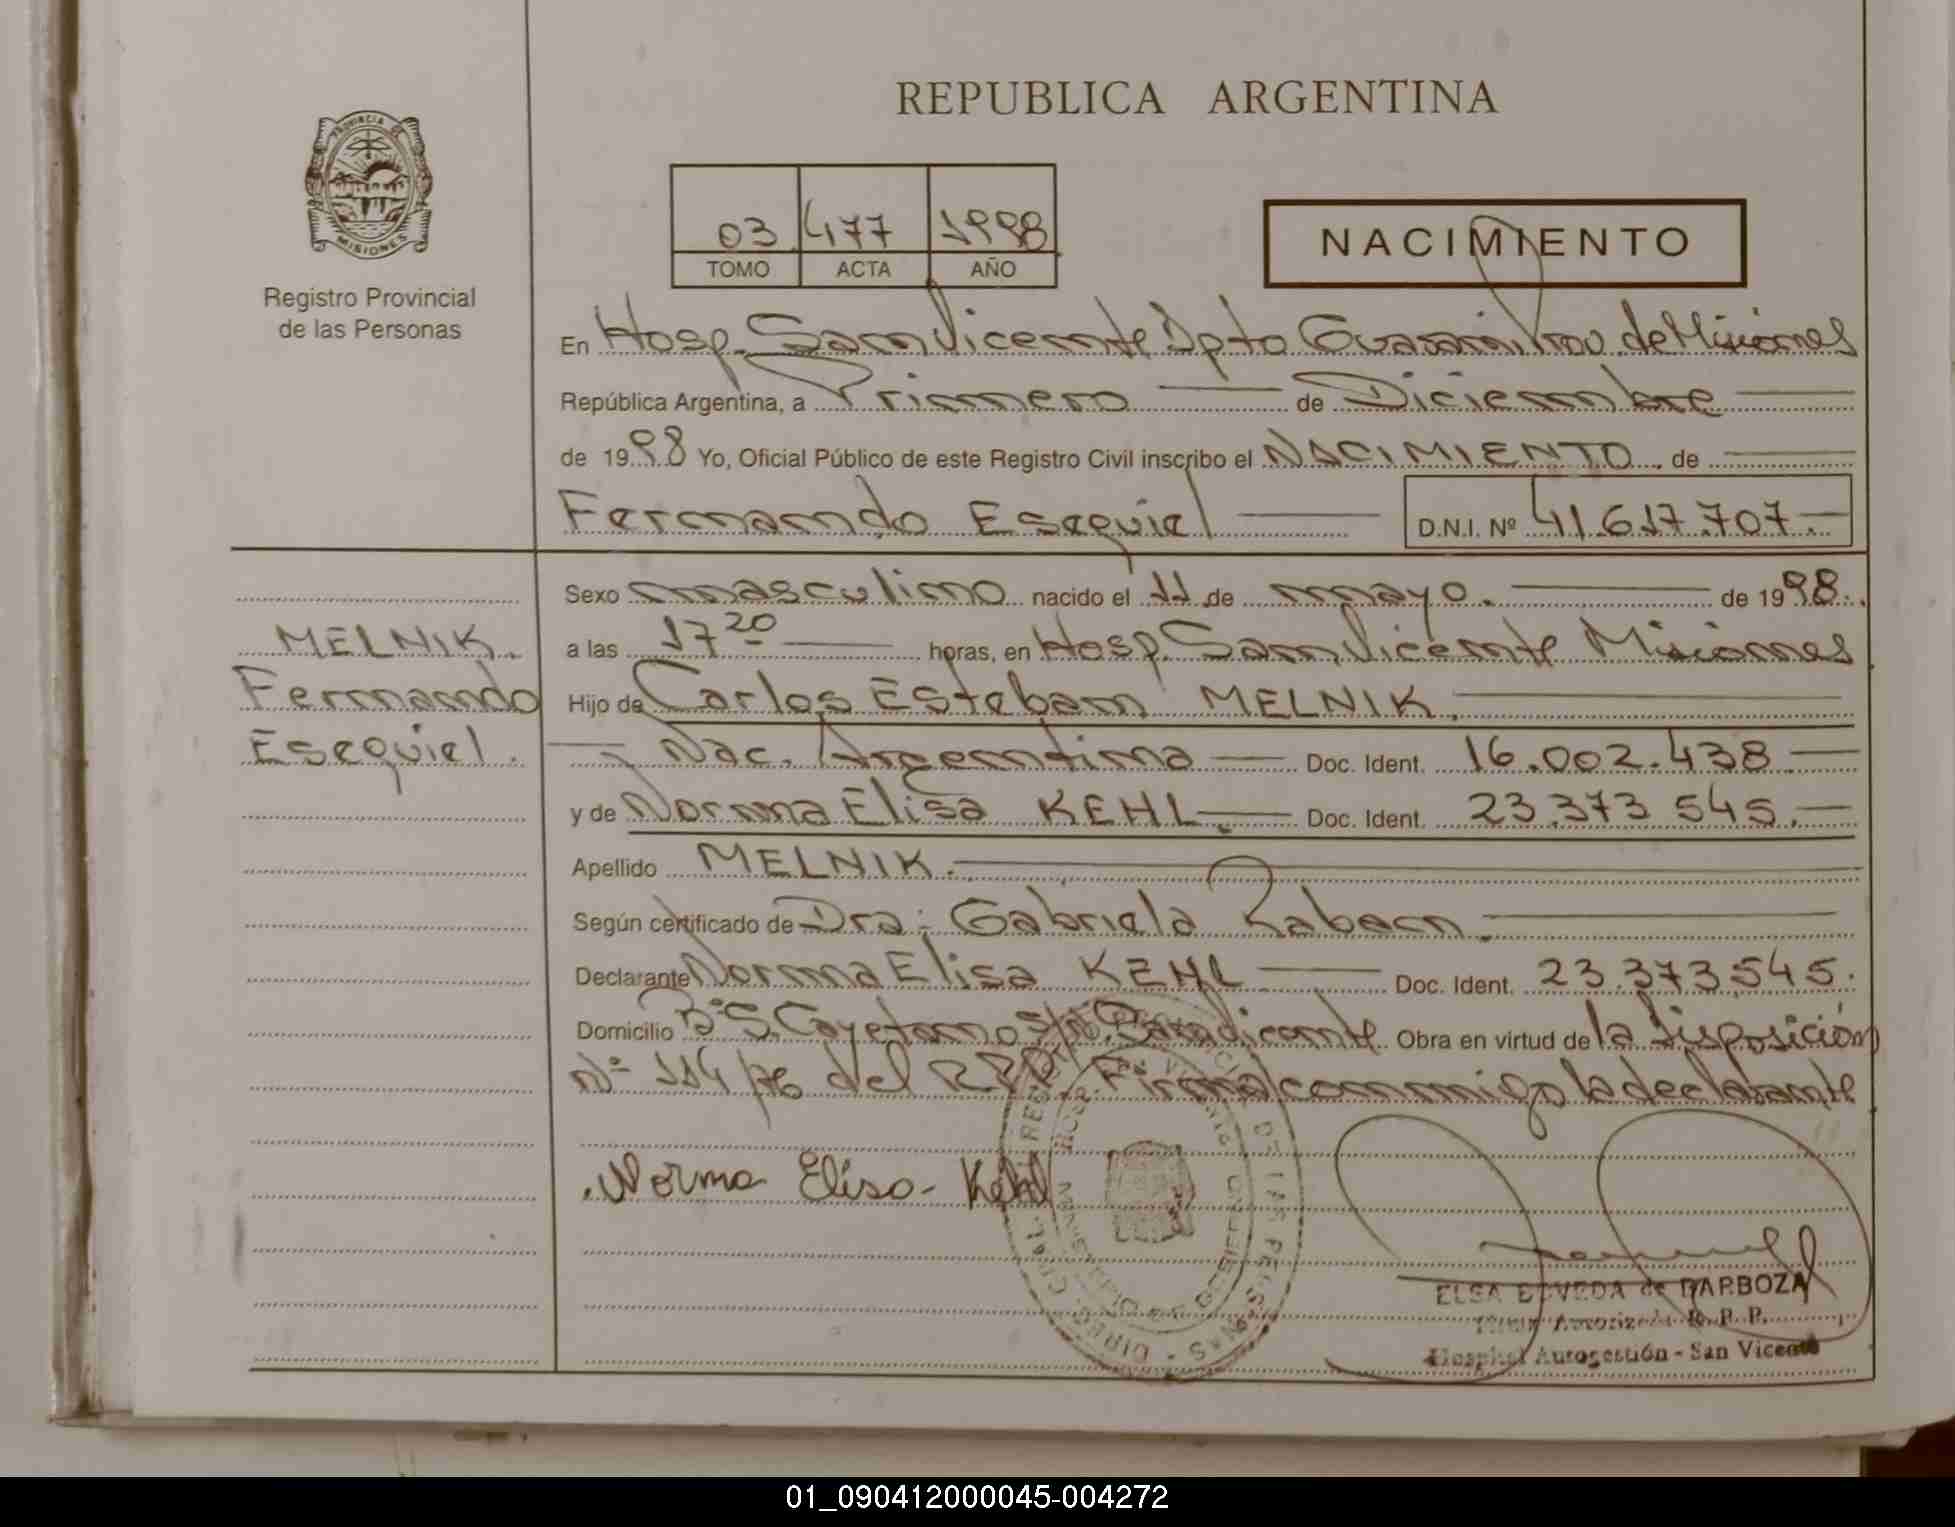 REPUBLICA ARGENTINA
PROVINCIA DE
MISIONES
Registro Provincial
de las Personas
03 477 1998
TOMO ACTA AÑO
NACIMIENTO
En Hosp. San Vicente Dpto Guaraní Prov. de Misiones
República Argentina, a Primero de Diciembre
de 1998 Yo, Oficial Público de este Registro Civil inscribo el NACIMIENTO de
Fernando Esequiel D.N.I. Nº 41.617.707.-
Sexo masculino nacido el 11 de mayo. de 1998.
a las 17 20 horas, en Hosp. San Vicente Misiones
MELNIK.
Fernando
Esequiel.
Hijo de Carlos Esteban MELNIK.
Nac. Argentina Doc. Ident. 16.002.438
y de Norma Elisa KEHL. Doc. Ident. 23.373 545.
Apellido MELNIK.
Según certificado de Dra: Gabriela
Declarante Norma Elisa KEHL Doc. Ident. 23.373.545.
Domicilio Bº S. Cayetano s/nº San Vicente Obra en virtud de la disposición
Nº 114/76 del RPP. Firma conmigo la declarante
Norma Elisa Kehl
ELSA de BARBOZA
Autorizada R. P. P.
Hospital Autogestión - San Vicente
01_090412000045-004272